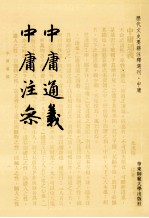 歷代文史要籍注釋選刊·中庸
中庸通義
中庸注參
華東師範大學出版社